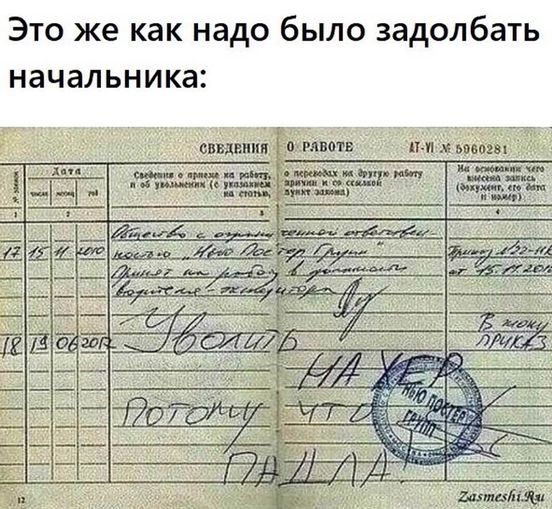 Это же как надо было задолбать
начальника:
СВЕДЕНИЯ О РАБОТЕ АТ-VI № 5960281
№ записи
Дата
число месяц год
Сведения о приеме на работу, о переводах на другую работу
и об увольнении (с указанием причин и со ссылкой
на статью, пункт закона)
На основании чего
внесена запись
(документ, его дата
и номер)
1 2 3 4
Общество с ограниченной ответствен-
17 15 11 2010 ностью „Нью Постер Групп" Приказ №22-НК
Принят на работу в должности от 15.11.2010
водителя-экспедитора
18 19 06 2012 Уволить В жопу
ПРИКАЗ
НАХЕР
Потому ЧТО
ПАДЛА.
НЬЮ ПОСТЕР
ГРУПП
МОСКВА
12
Zasmeshi.Ru